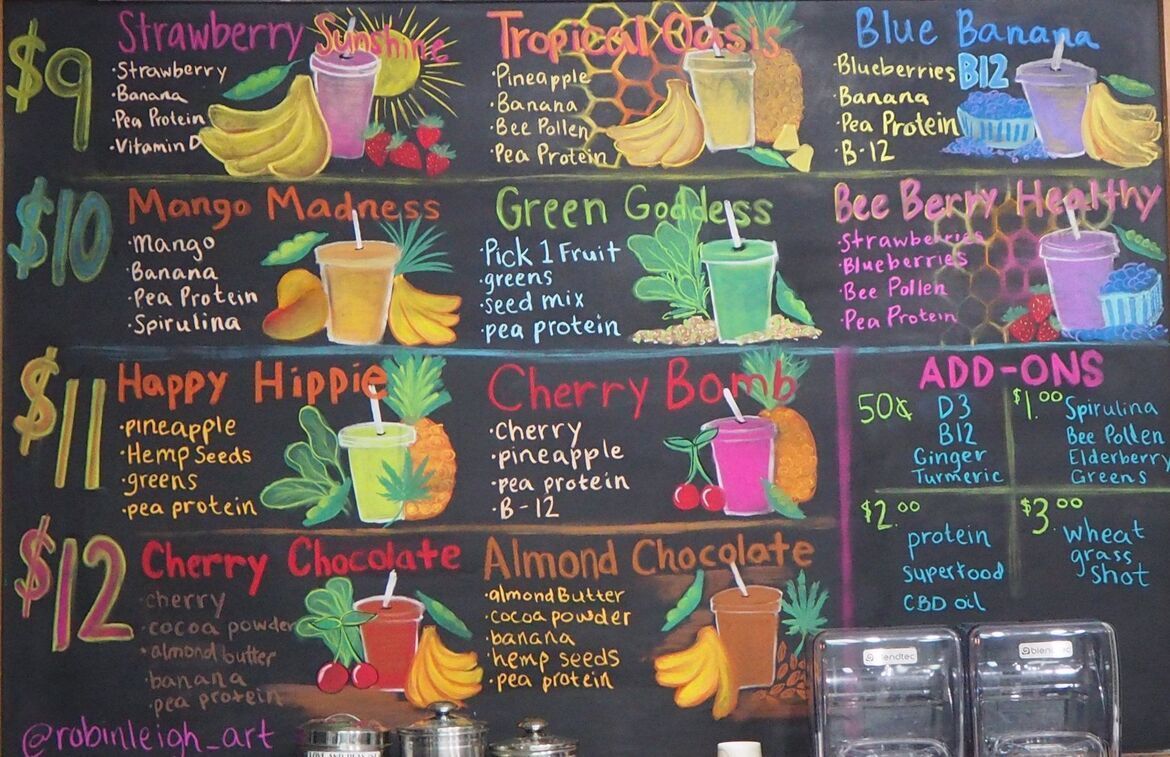 $9
Strawberry Sunshine
·Strawberry
·Banana
·Pea Protein
·Vitamin D
Tropical Oasis
·Pineapple
·Banana
·Bee Pollen
·Pea Protein
Blue Banana
B12
·Blueberries
·Banana
·Pea Protein
·B-12
$10
Mango Madness
·Mango
·Banana
·Pea Protein
·Spirulina
Green Goddess
·Pick 1 Fruit
·greens
·seed mix
·pea protein
Bee Berry Healthy
·Strawberries
·Blueberries
·Bee Pollen
·Pea Protein
$11
Happy Hippie
·pineapple
·Hemp Seeds
·greens
·pea protein
Cherry Bomb
·Cherry
·pineapple
·pea protein
·B-12
ADD-ONS
50¢ D3
B12
Ginger
Turmeric
$1.00 Spirulina
Bee Pollen
Elderberry
Greens
$2.00
protein
superfood
CBD oil
$3.00
wheat
grass
shot
$12
Cherry Chocolate
·cherry
·cocoa powder
·almond butter
·banana
·pea protein
Almond Chocolate
·almond Butter
·cocoa powder
·banana
·hemp seeds
·pea protein
@robinleigh_art
blendtec
blendtec